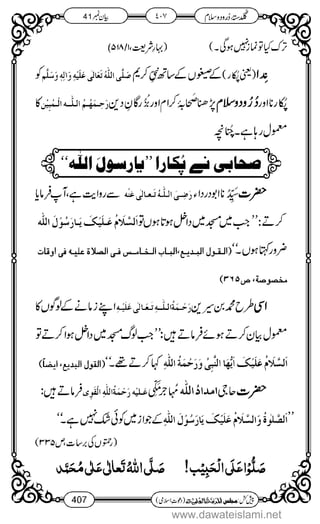 گلدستۂ درود و سلام ٤٠٧ بیان نمبر 41
ترک کیا تو نماز نہیں ہوگی۔) (بہار شریعت، ۱/۵۱۸)
ندا (یعنی پکار) کے صیغوں کے ساتھ نبی کریم صَلَّی اللّٰہُ تَعَالٰی عَلَیْہِ وَاٰلِہٖ وَسَلَّم کو
پکارنا اور دُرُود و سلام پڑھنا صحابۂ کرام اور بزرگانِ دین رَحِمَہُمُ اللّٰہُ الْمُبِیْن کا
معمول رہا ہے۔ چنانچہ
صحابی نے پکارا ’’یارسولَ اللّٰہ‘‘
حضرت سَیِّدُنا ابو درداء رَضِیَ اللّٰہُ تَعَالٰی عَنْہُ سے روایت ہے، آپ فرمایا
کرتے: ’’جب میں مسجد میں داخل ہوتا ہوں تو اَلسَّلَامُ عَلَیْکَ یَارَسُوْلَ اللّٰہ
ضرور کہتا ہوں۔‘‘ (القول البدیع، الباب الخامس فی الصلاۃ علیہ فی اوقات
مخصوصۃ، ص ٣٦٥)
اسی طرح محمد بن سیرین رَحْمَۃُ اللّٰہِ تَعَالٰی عَلَیْہِ اپنے زمانے کے لوگوں کا
معمول بیان کرتے ہوئے فرماتے ہیں: ’’جب لوگ مسجد میں داخل ہوا کرتے تو
اَلسَّلَامُ عَلَیْکَ اَیُّہَا النَّبِیُّ وَرَحْمَۃُ اللّٰہِ کہا کرتے تھے۔‘‘ (القول البدیع، ایضاً)
حضرت حاجی امدادُ اللّٰہ مُہاجِر مکی عَلَیْہِ رَحْمَۃُ اللّٰہِ الْقَوِی فرماتے ہیں:
’’اَلصَّلٰوۃُ وَالسَّلَامُ عَلَیْکَ یَارَسُوْلَ اللّٰہ کے جواز میں کوئی شک نہیں ہے۔‘‘
صَلُّوْا عَلَی الْحَبِیْب! صَلَّی اللّٰہُ تَعَالٰی عَلٰی مُحَمَّد
407
www.dawateislami.net